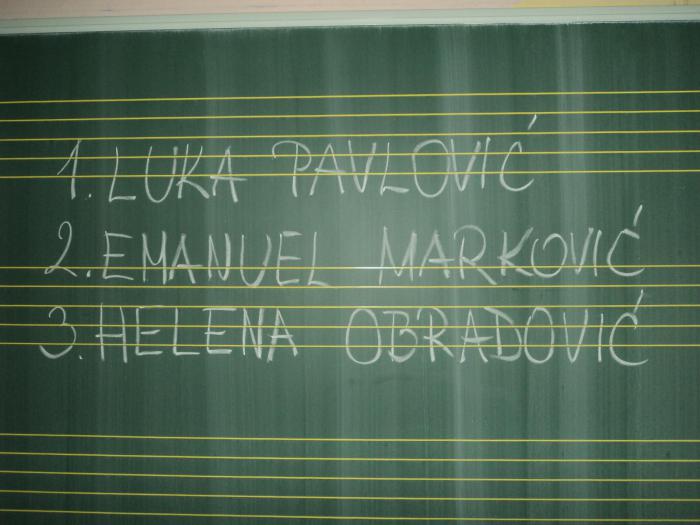 1. LUKA PAVLOVIĆ
2. EMANUEL MARKOVIĆ
3. HELENA OBRADOVIĆ